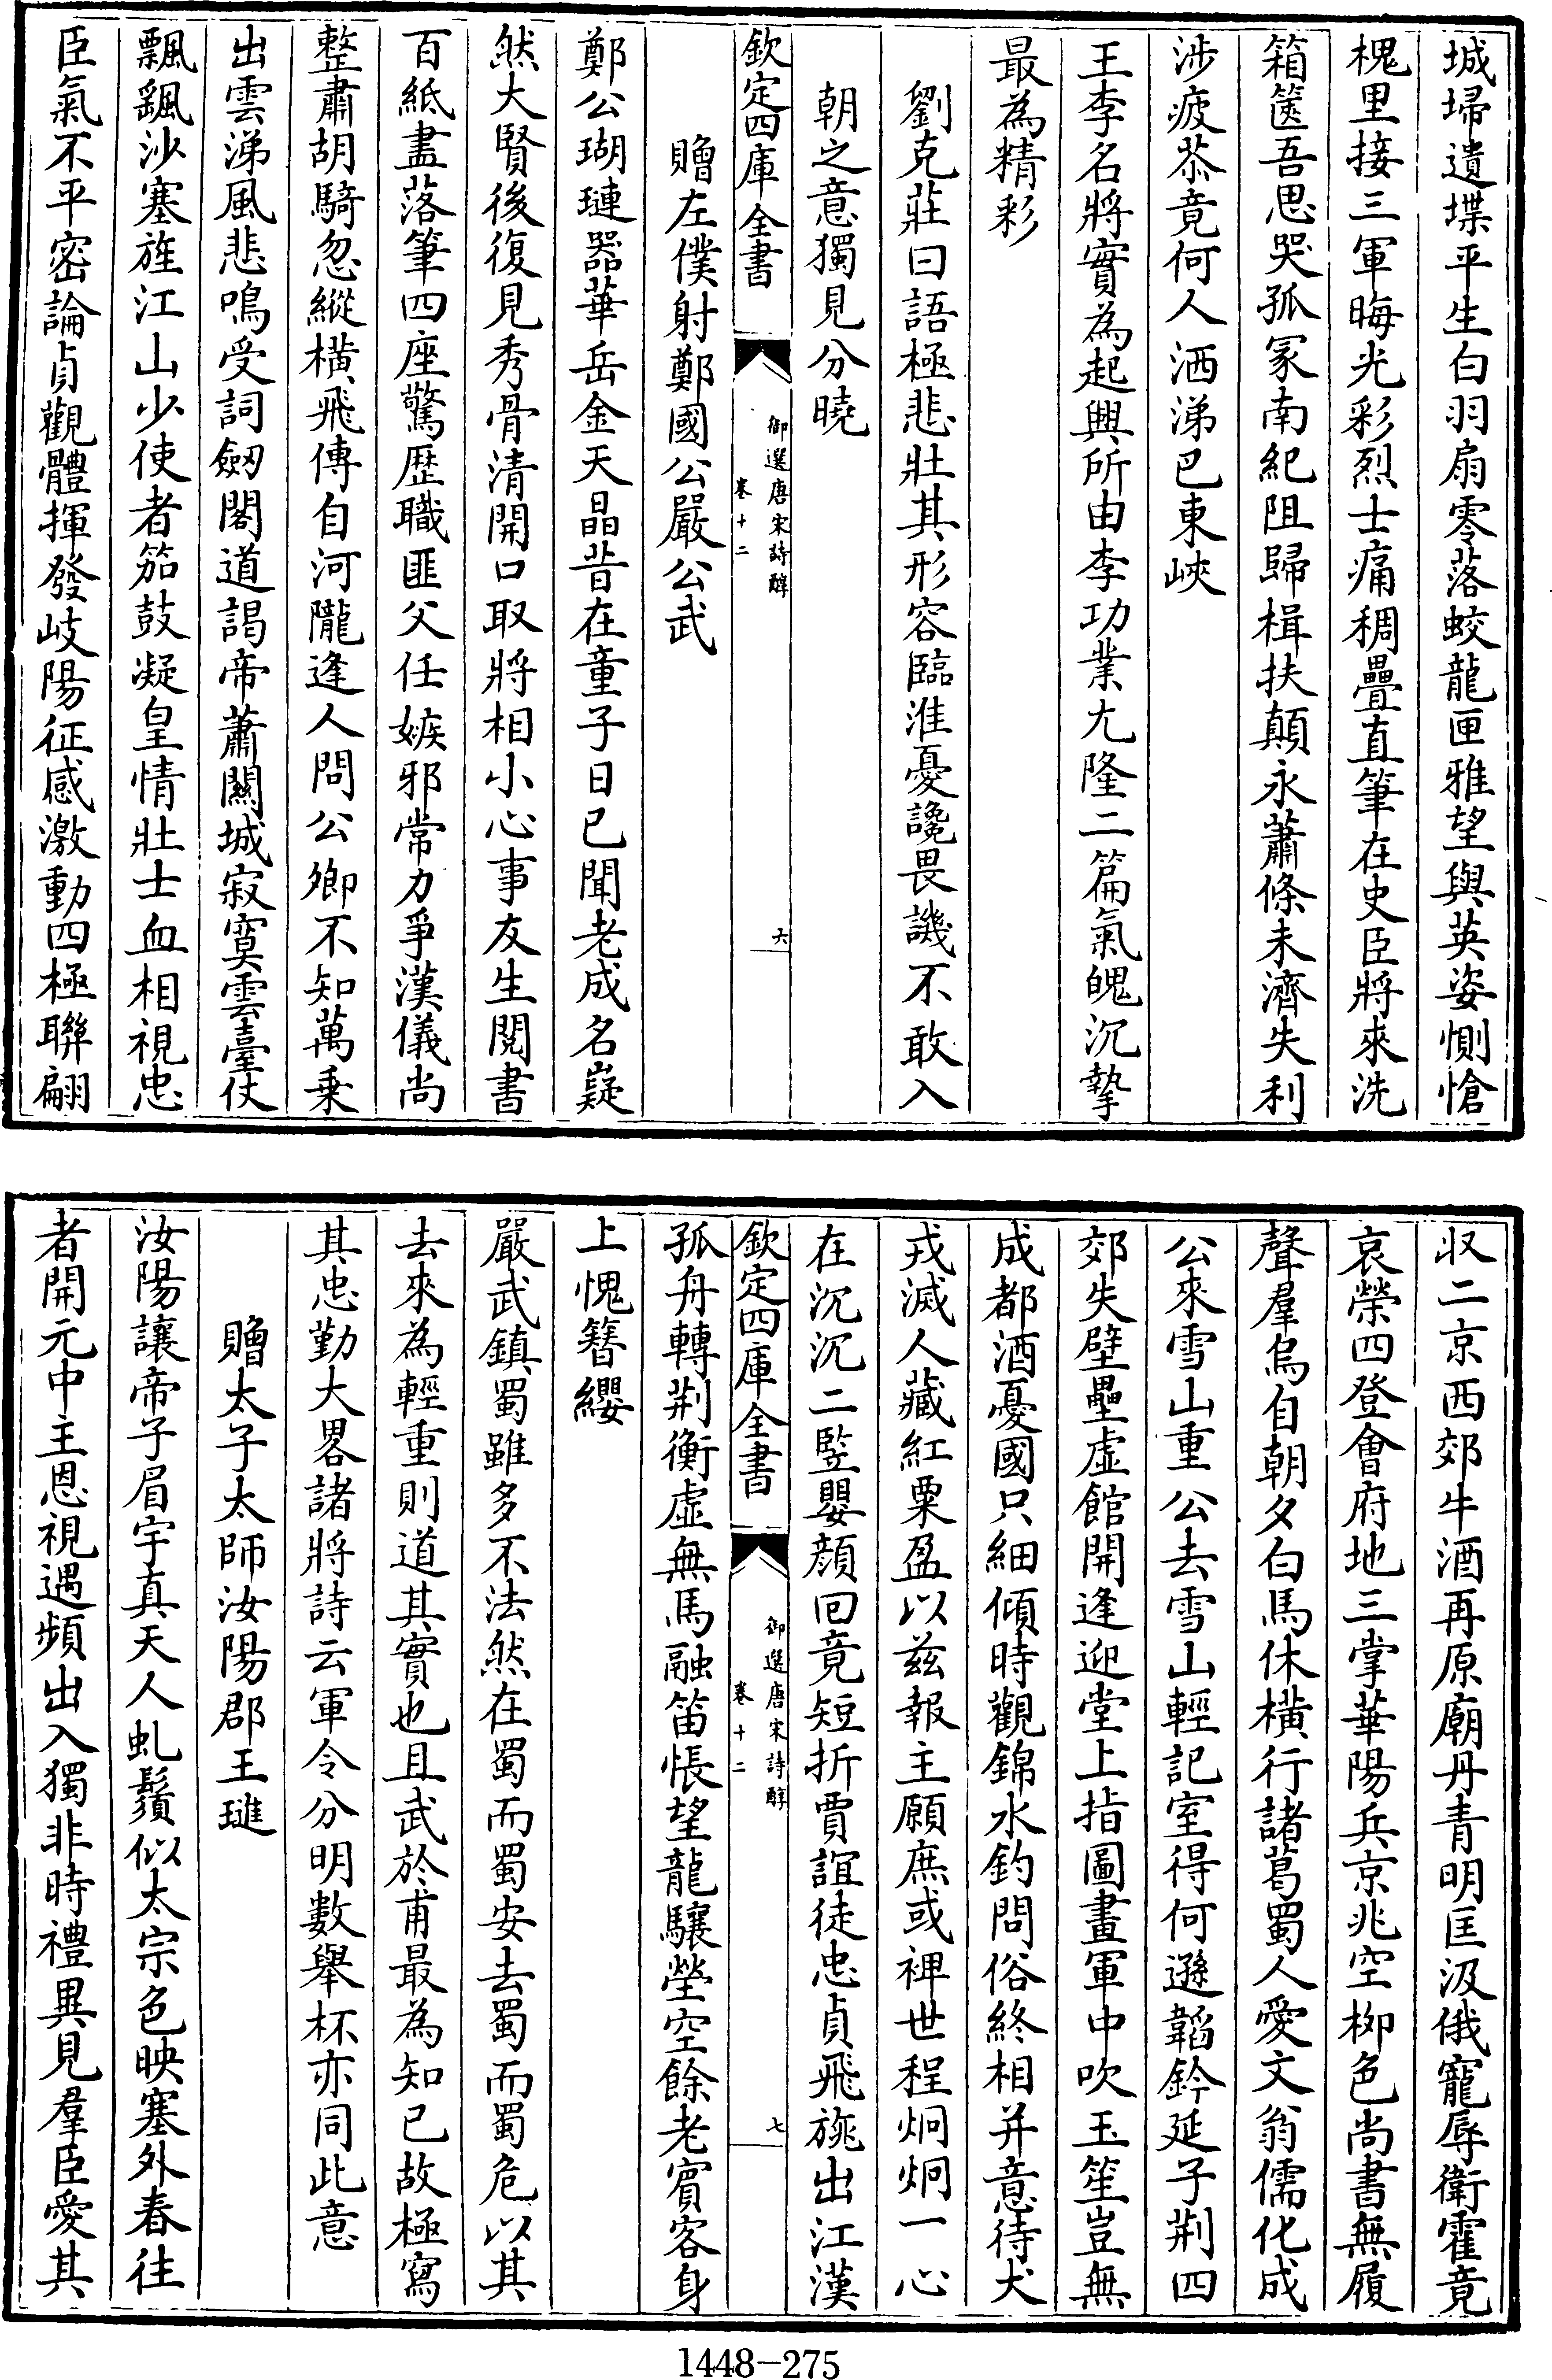 城埽遺堞平生白羽扇零落蛟龍匣雅望與英姿惻愴
槐里接三軍晦光彩烈士痛稠疊直筆在史臣將來洗
箱篋吾思哭孤冢南紀阻歸楫扶顛永蕭條未濟失利
涉疲苶竟何人洒涕巴東峽
王李名將實為起興所由李功業尤隆二篇氣魄沉摯
最為精彩
劉克莊曰語極悲壯其形容臨淮憂讒畏譏不敢入
朝之意獨見分曉
欽定四庫全書
御選唐宋詩醇
卷十二
六
贈左僕射鄭國公嚴公武
鄭公瑚璉器華岳金天晶昔在童子日已聞老成名嶷
然大賢後復見秀骨清開口取將相小心事友生閱書
百紙盡落筆四座驚歴職匪父任嫉邪常力爭漢儀尚
整肅胡騎忽縱橫飛傳自河隴逢人問公卿不知萬乗
出雲涕風悲鳴受詞劒閣道謁帝蕭關城寂寞雲臺仗
飄飖沙塞旌江山少使者笳鼓凝皇情壯士血相視忠
臣氣不平密論貞觀體揮發岐陽征感激動四極聯翩
収二京西郊牛酒再原廟丹青明匡汲俄寵辱衛霍竟
哀榮四登會府地三掌華陽兵京兆空柳色尚書無履
聲羣烏自朝夕白馬休橫行諸葛蜀人愛文翁儒化成
公來雪山重公去雪山輕記室得何遜韜鈐延子荆四
郊失壁壘虛館開逢迎堂上指圖畫軍中吹玉笙豈無
成都酒憂國只細傾時觀錦水釣問俗終相并意待犬
戎滅人藏紅粟盈以茲報主願庶或裨世程炯炯一心
在沉沉二竪嬰顔回竟短折賈誼徒忠貞飛旐出江漢
欽定四庫全書
御選唐宋詩醇
卷十二
七
孤舟轉荆衡虛無馬融笛悵望龍驤塋空餘老賔客身
上愧簪纓
嚴武鎮蜀雖多不法然在蜀而蜀安去蜀而蜀危以其
去來為輕重則道其實也且武於甫最為知已故極寫
其忠勤大畧諸將詩云軍令分明數舉杯亦同此意
贈太子太師汝陽郡王璡
汝陽讓帝子眉宇真天人虬鬚似太宗色映塞外春往
者開元中主恩視遇頻出入獨非時禮異見羣臣愛其
1448-275